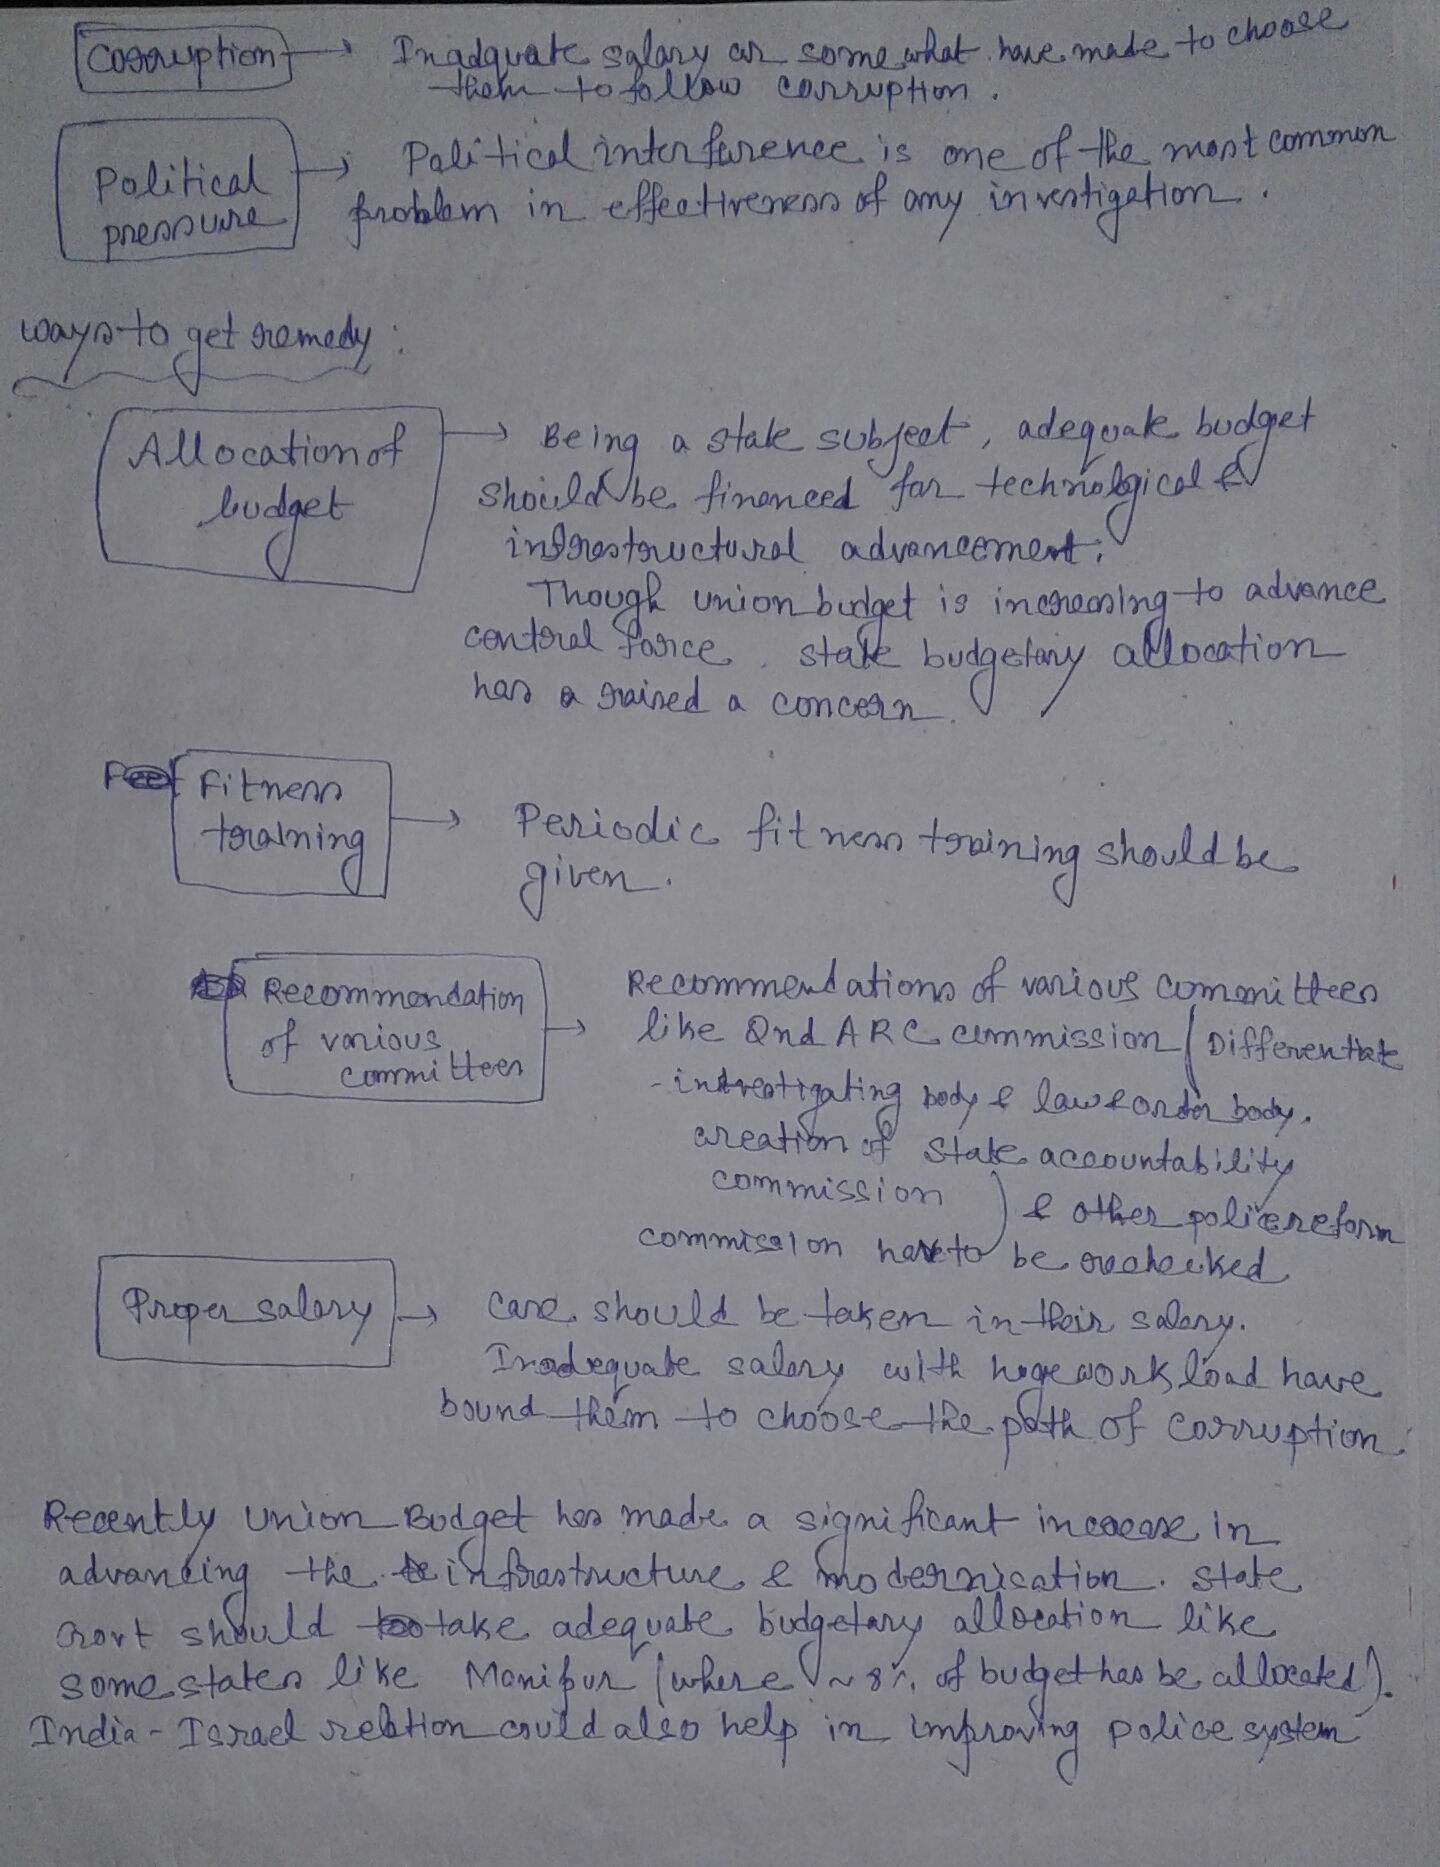 Corruption → Inadquate salary or somewhat have made to choose
them to follow corruption.
Political
pressure → Political interference is one of the most common
problem in effectiveness of any investigation.
ways to get remedy :
Allocation of
budget → Being a state subject, adequate budget
should be financed for technological &
infrastructural advancement.
Though union budget is increasing to advance
central force. state budgetary allocation
has a raised a concern.
Fitness
training → Periodic fitness training should be
given.
Recommendation
of various
committees → Recommendations of various committees
like 2nd ARC commission ( Differentiate
- investigating body & law & order body.
creation of State accountability
commission ) & other police reform
commission have to be rechecked
Proper salary → Care should be taken in their salary.
Inadequate salary with huge work load have
bound them to choose the path of corruption.
Recently Union Budget has made a significant increase in
advancing the infrastructure & modernisation. State
Govt should take adequate budgetary allocation like
some states like Manipur (where ~ 8% of budget has be allocated).
India - Israel relation could also help in improving police system